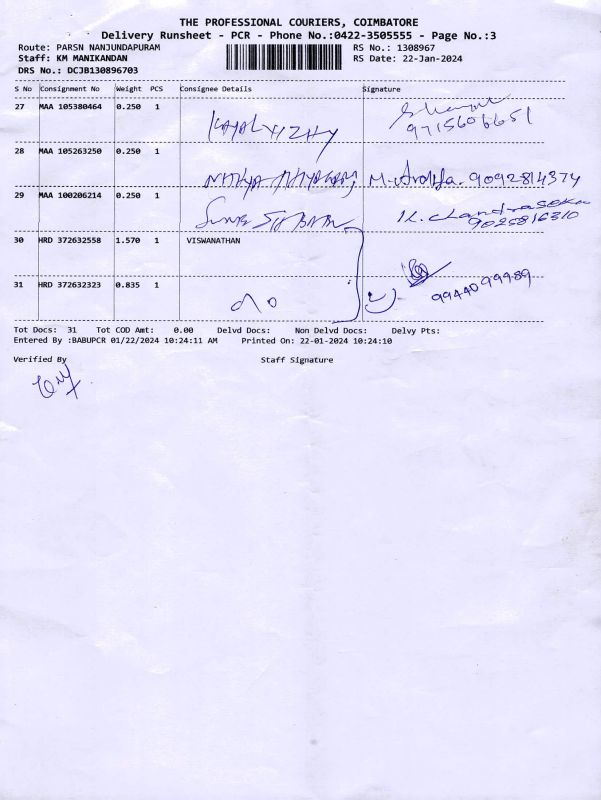 THE PROFESSIONAL COURIERS, COIMBATORE
Delivery Runsheet - PCR - Phone No.:0422-3505555 - Page No.:3
Route: PARSN NANJUNDAPURAM
RS No.: 1308967
Staff: KM MANIKANDAN
RS Date: 22-Jan-2024
DRS No.: DCJB130896703
S No Consignment No Weight PCS Consignee Details Signature
27 MAA 105380464 0.250 1
9715606651
28 MAA 105263250 0.250 1
9092814374
29 MAA 100206214 0.250 1
K. chandrasekar
9025816310
30 HRD 372632558 1.570 1 VISWANATHAN
31 HRD 372632323 0.835 1
9944099989
Tot Docs: 31 Tot COD Amt: 0.00 Delvd Docs: Non Delvd Docs: Delvy Pts:
Entered By :BABUPCR 01/22/2024 10:24:11 AM Printed On: 22-01-2024 10:24:10
Verified By Staff Signature